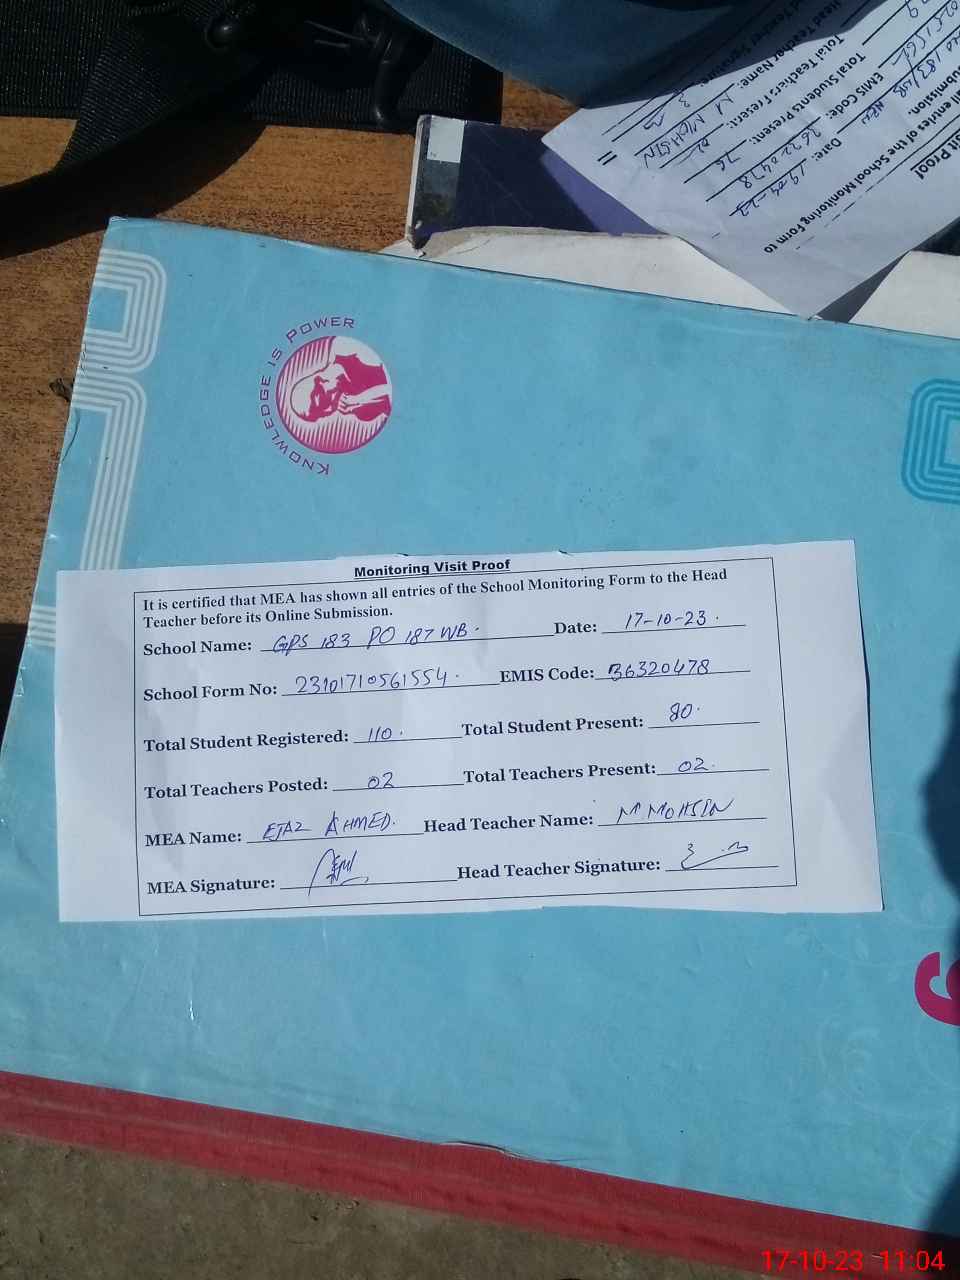 sit Proof
all entries of the School Monitoring Form to
ubmission.
Date: 19-04-23
EMIS Code: 36320478
Total Students Present: 76
Total Teachers Present: 02
Head Teacher Name: M MOHSIN
KNOWLEDGE IS POWER
Monitoring Visit Proof
It is certified that MEA has shown all entries of the School Monitoring Form to the Head
Teacher before its Online Submission.
School Name: GPS 183 PO 187 WB. Date: 17-10-23.
School Form No: 23101710561554. EMIS Code: 36320478
Total Student Registered: 110. Total Student Present: 80.
Total Teachers Posted: 02 Total Teachers Present: 02.
MEA Name: EJAZ AHMED. Head Teacher Name: M MOHSIN
MEA Signature: Head Teacher Signature:
17-10-23 11:04